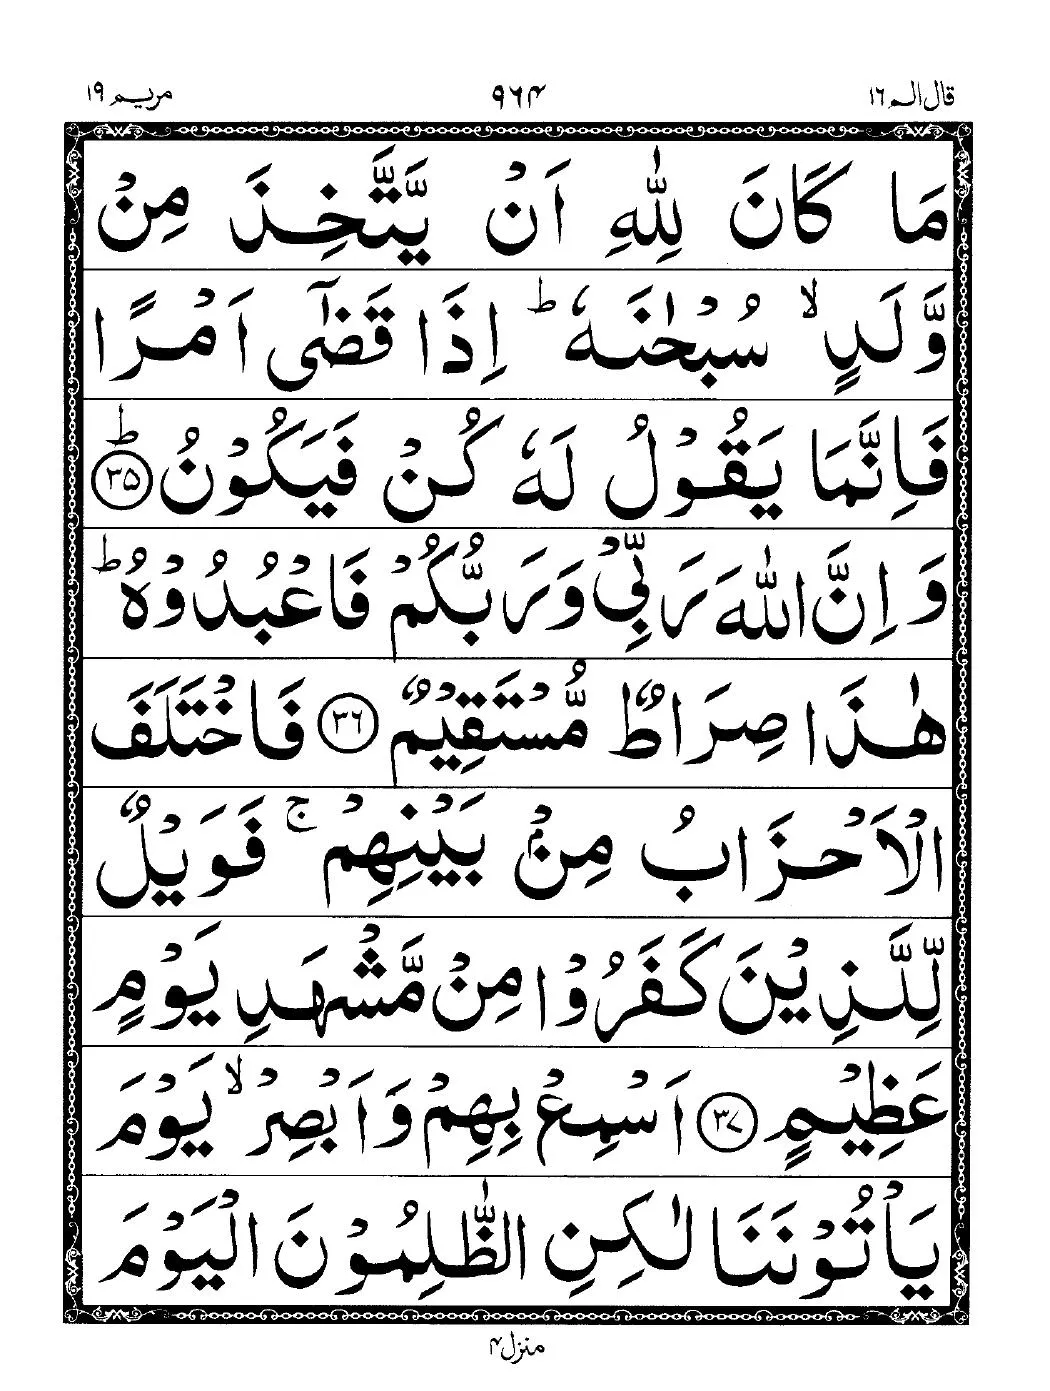 قال الم ١٦
٩٦۴
مریم ١٩
مَا كَانَ لِلّٰهِ اَنْ يَّتَّخِذَ مِنْ
وَّلَدٍ ۙ سُبْحٰنَهٗ ؕ اِذَا قَضٰۤى اَمْرًا
فَاِنَّمَا يَقُوْلُ لَهٗ كُنْ فَيَكُوْنُ ؕ ﴿۳۵﴾
وَاِنَّ اللّٰهَ رَبِّىْ وَرَبُّكُمْ فَاعْبُدُوْهُ ؕ
هٰذَا صِرَاطٌ مُّسْتَقِيْمٌ ﴿۳۶﴾ فَاخْتَلَفَ
الْاَحْزَابُ مِنْۢ بَيْنِهِمْ ۚ فَوَيْلٌ
لِّلَّذِيْنَ كَفَرُوْا مِنْ مَّشْهَدِ يَوْمٍ
عَظِيْمٍ ﴿۳۷﴾ اَسْمِعْ بِهِمْ وَاَبْصِرْ ۙ يَوْمَ
يَاْتُوْنَنَا لٰكِنِ الظّٰلِمُوْنَ الْيَوْمَ
منزل ۴